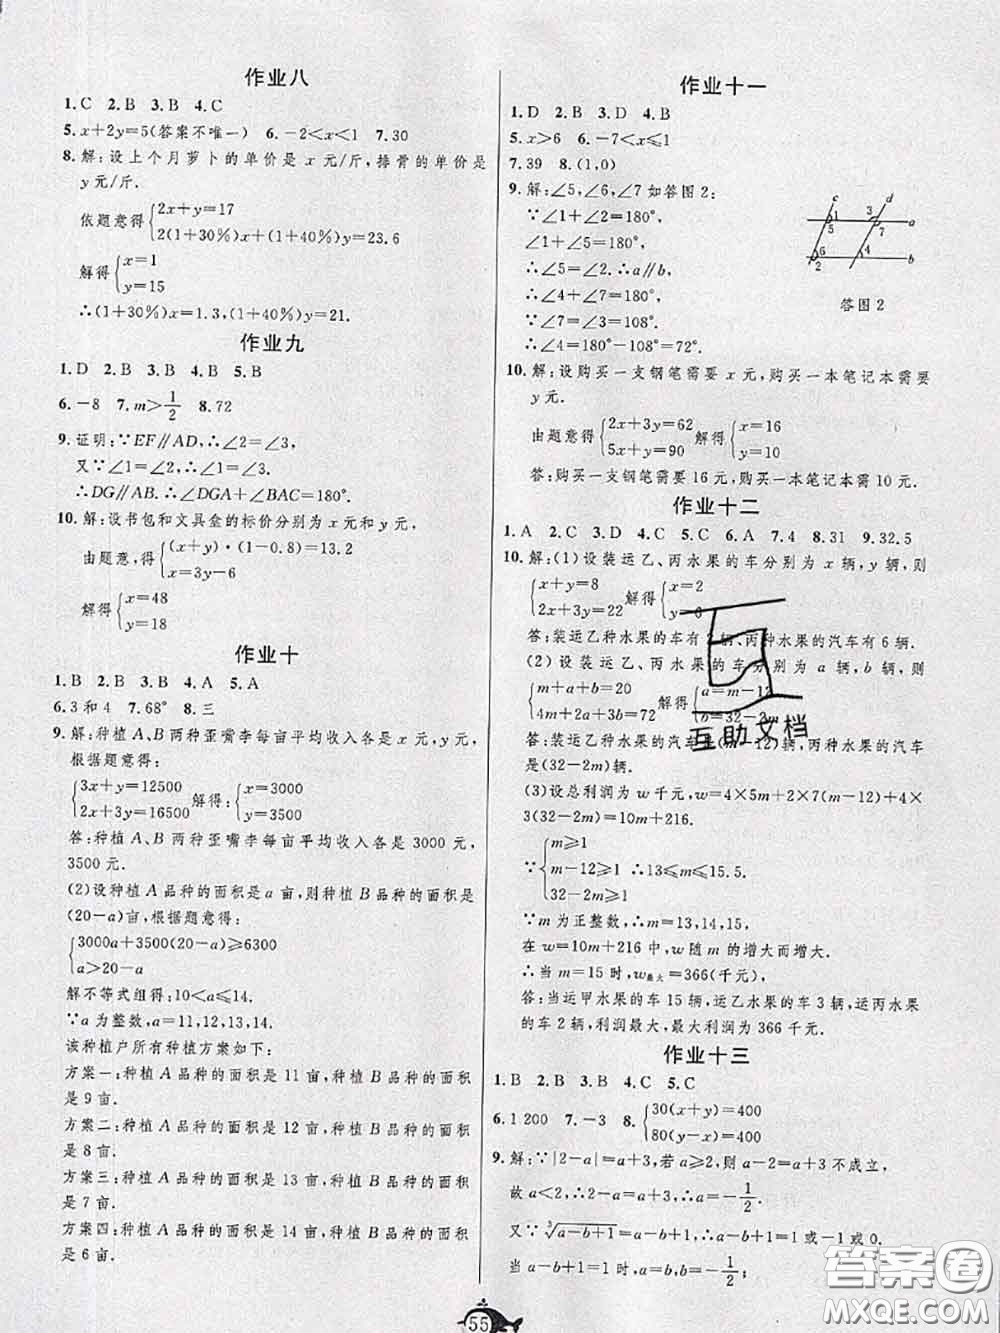 作业八
1.C 2.B 3.B 4.C
5.x+2y=5(答案不唯一) 6.-2<x<1 7.30
8.解:设上个月萝卜的单价是 x 元/斤,排骨的单价是
y元/斤.
依题意得{2x+y=17
2(1+30%)x+(1+40%)y=23.6
解得{x=1
y=15
∴(1+30%)x=1.3,(1+40%)y=21.
作业九
1.D 2.B 3.B 4.B 5.B
6.-8 7.m>1/2 8.72
9.证明:∵EF∥AD,∴∠2=∠3,
又∵∠1=∠2,∴∠1=∠3.
∴DG∥AB.∴∠DGA+∠BAC=180°.
10.解:设书包和文具盒的标价分别为 x 元和 y 元,
由题意,得{(x+y)·(1-0.8)=13.2
x=3y-6
解得{x=48
y=18
作业十
1.B 2.B 3.B 4.A 5.A
6.3 和 4 7.68° 8.三
9.解:种植A、B两种歪嘴李每亩平均收入各是 x元,y元,
根据题意得:
{3x+y=12500
2x+3y=16500 解得:{x=3000
y=3500
答:种植 A、B 两种歪嘴李每亩平均收入各是 3000 元,
3500元.
(2)设种植 A 品种的面积是a 亩,则种植 B 品种的面积是
(20-a)亩,根据题意得:
{3000a+3500(20-a)≥6300
a>20-a
解不等式组得:10<a≤14.
∵a 为整数,∴a=11,12,13,14.
该种植户所有种植方案如下:
方案一:种植 A 品种的面积是 11 亩,种植 B 品种的面积
是 9 亩.
方案二:种植 A 品种的面积是 12 亩,种植 B 品种的面积
是 8 亩.
方案三:种植 A 品种的面积是 13 亩,种植 B 品种的面积
是 7 亩.
方案四:种植 A 品种的面积是 14 亩,种植 B 品种的面积
是 6 亩.
作业十一
1.D 2.B 3.D 4.B
5.x>6 6.-7<x≤1
7.39 8.(1,0)
9.解:∠5,∠6,∠7 如答图 2:
∵∠1+∠2=180°,
∠1+∠5=180°,
∴∠5=∠2.∴a∥b,
∴∠4+∠7=180°,
∵∠7=∠3=108°,
∴∠4=180°-108°=72°.
c d
1 3 a
5 7
6 4
2 b
答图 2
10.解:设购买一支钢笔需要 x 元,购买一本笔记本需要
y 元.
由题意得{2x+3y=62
5x+y=90 解得{x=16
y=10
答:购买一支钢笔需要 16 元,购买一本笔记本需 10 元.
作业十二
1.A 2.C 3.D 4.C 5.C 6.A 7.4 8.31 9.32.5
10.解:(1)设装运乙、丙水果的车分别为 x 辆,y 辆,则
{x+y=8
2x+3y=22 解得{x=2
y=6
答:装运乙种水果的车有2辆、丙种水果的汽车有 6 辆.
(2)设装运乙、丙水果的车分别为 a 辆,b 辆,则
{m+a+b=20
4m+2a+3b=72 解得{a=m-12
b=32-2m
答:装运乙种水果的汽车是(m-12)辆,丙种水果的汽车
是(32-2m)辆.
(3)设总利润为 w 千元,w=4×5m+2×7(m-12)+4×
3(32-2m)=10m+216.
∵{m≥1
m-12≥1
32-2m≥1 ∴13≤m≤15.5.
∵m 为正整数,∴m=13,14,15,
在 w=10m+216 中,w 随 m 的增大而增大.
∴当 m=15 时,w最大=366(千元),
答:当运甲水果的车 15 辆,运乙水果的车 3 辆,运丙水果
的车 2 辆,利润最大,最大利润为 366 千元.
作业十三
1.B 2.B 3.B 4.C 5.C
6.1 200 7.-3 8.{30(x+y)=400
80(y-x)=400
9.解:∵|2-a|=a+3,若 a≥2,则 a-2=a+3 不成立,
故 a<2,∴2-a=a+3,∴a=-1/2.
又∵∛(a-b+1)=a-b+1,∴a-b+1=1 或-1 或 0.
当 a-b+1=1 时,a=b,b=-1/2;
55
互助文档
答案圈
MXQE.COM